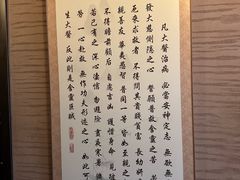 凡大醫治病 必當安神定志 無欲無
發大慈惻隱之心 誓願普救含靈之苦 若
厄來求救者 不得問其貴賤貧富 長幼妍
親善友 華夷愚智 普同一等 皆如至親之
不得瞻前顧後 自慮吉凶 護惜身命 見
若己有之 深心悽愴 勿避險巇 晝夜寒暑
勞 一心赴救 無作功夫形迹之心 如此可
生大醫 反此則是含靈巨賊